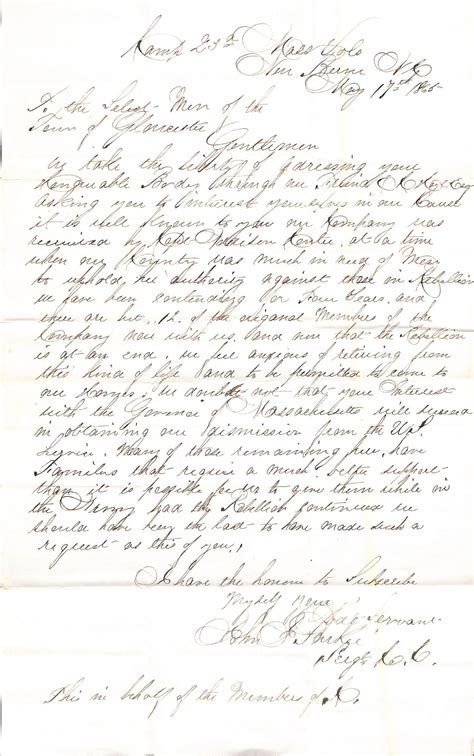 Kamp 23d Mass Vols
New Burne NC
May 17th 1865
To the Select-Men of the
Town of Gloucester
Gentlemen
we take the liberty of adressing your
Honguable Bordey through our Friend
asking you to interest yourselves in our Cause
it is well known to you our Kompany was
recruited by Kapt Addison Center at a time
when our Kountry was much in need of Men
to uphold her authority against those in Rebellion
we have been contending for Four Years and
there are but 12 of the origanal Members of the
Company now with us and now that the Rebellion
is at an end we feel anxious of retiring from
this kind of life and to be permitted to come to
our Homes. we doubt not that your Interest
with the Govenor of Massachusetts will succeed
in obtaining our dismission from the U.S.
Servis. Many of those remaining here have
Familus that require a much better support
than it is possible for us to give them while in
the Army had the Rebellion continued we
should have being the last to have made such a
request as this of you.
I have the honour to Subscribe
Myself Your
Obd Servant
John
Sergt Co C.
This in behalf of the Members of